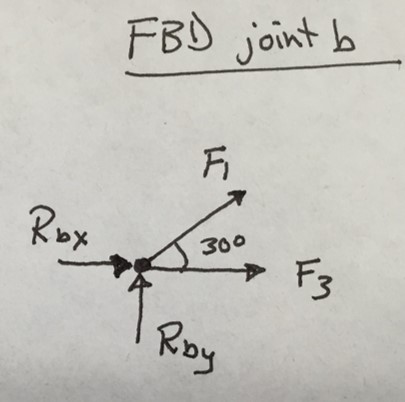 FBD joint b
F1
Rbx
30°
F3
Rby